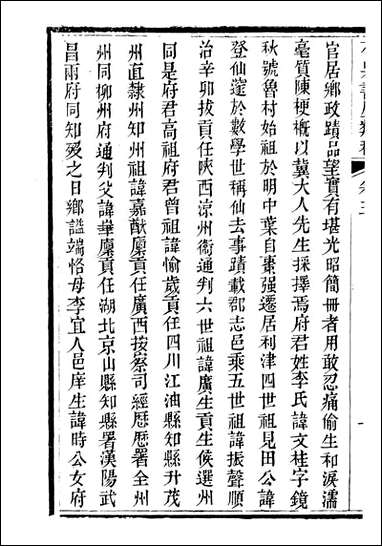 官居鄉政蹟品望實有堪光昭簡冊者用敢忍痛偷生和淚濡
毫質陳梗槪以冀大人先生採擇焉府君姓李氏諱文桂字鏡
秋號魯村始祖於明中葉自棗强遷居利津四世祖見田公諱
登仙邃於數學世稱仙去事蹟載郡志邑乘五世祖諱振聲順
治辛卯拔貢任陜西涼州衞通判六世祖諱廣生貢生候選州
同是府君高祖府君曾祖諱愉歲貢任四川江油縣知縣升茂
州直隸州知州祖諱嘉猷廩貢任廣西按察司經歷歷署全州
州同柳州府通判父諱華廩貢任湖北京山縣知縣署漢陽武
昌兩府同知歿之日鄉謚端恪母李宜人邑庠生諱時公女府